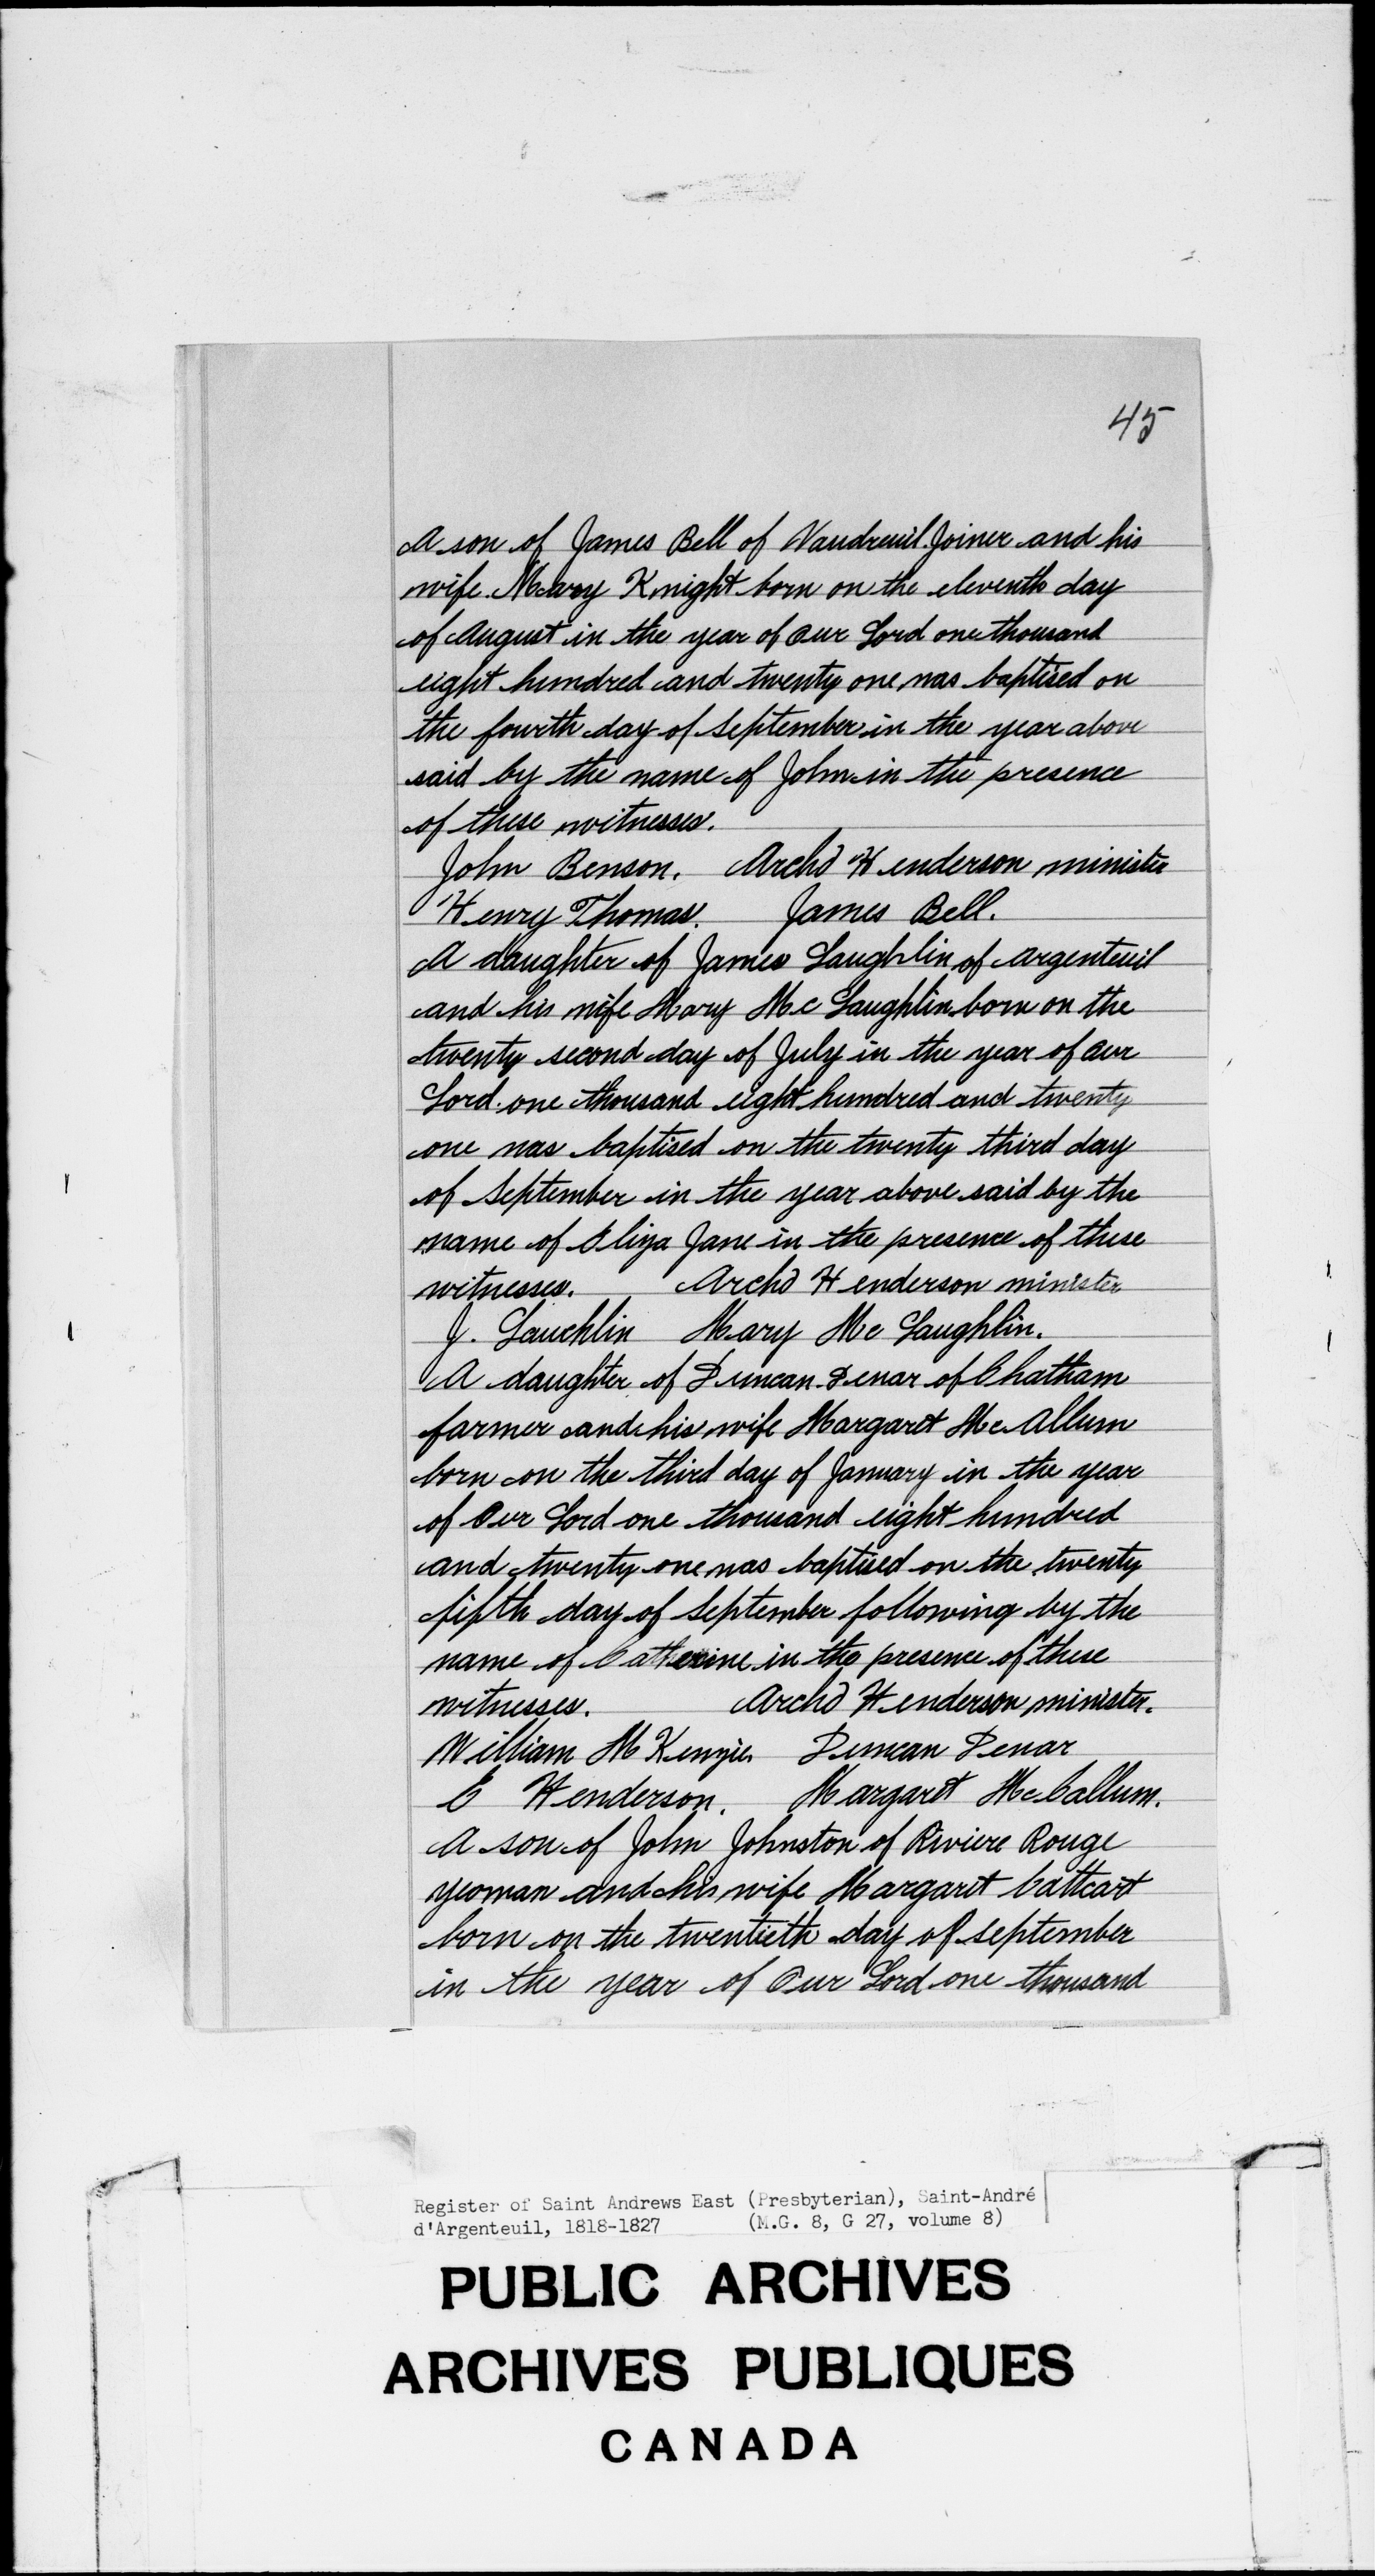 45
A son of James Bell of Vaudreuil Joiner and his
wife Mary Knight born on the eleventh day
of August in the year of Our Lord one thousand
eight hundred and twenty one was baptised on
the fourth day of September in the year above
said by the name of John in the presence
of these witnesses.
John Benson. Archd Henderson minister
Henry Thomas. James Bell.
A daughter of James Laughlin of Argenteuil
and his wife Mary Mc Laughlin born on the
twenty second day of July in the year of Our
Lord one thousand eight hundred and twenty
one was baptised on the twenty third day
of September in the year above said by the
name of Eliza Jane in the presence of these
witnesses. Archd Henderson minister
J. Lauchlin Mary Mc Laughlin.
A daughter of Duncan Denar of Chatham
farmer and his wife Margaret Mc Allum
born on the third day of January in the year
of Our Lord one thousand eight hundred
and twenty one was baptised on the twenty
fifth day of September following by the
name of Catherine in the presence of these
witnesses. Archd Henderson minister.
William M Kenzie Duncan Denar
E Henderson. Margaret Mc Callum.
A son of John Johnston of Riviere Rouge
yeoman and his wife Margaret Cattcart
born on the twentieth day of September
in the year of Our Lord one thousand
Register of Saint Andrews East (Presbyterian), Saint-André
d'Argenteuil, 1818-1827 (M.G. 8, G 27, volume 8)
PUBLIC ARCHIVES
ARCHIVES PUBLIQUES
CANADA